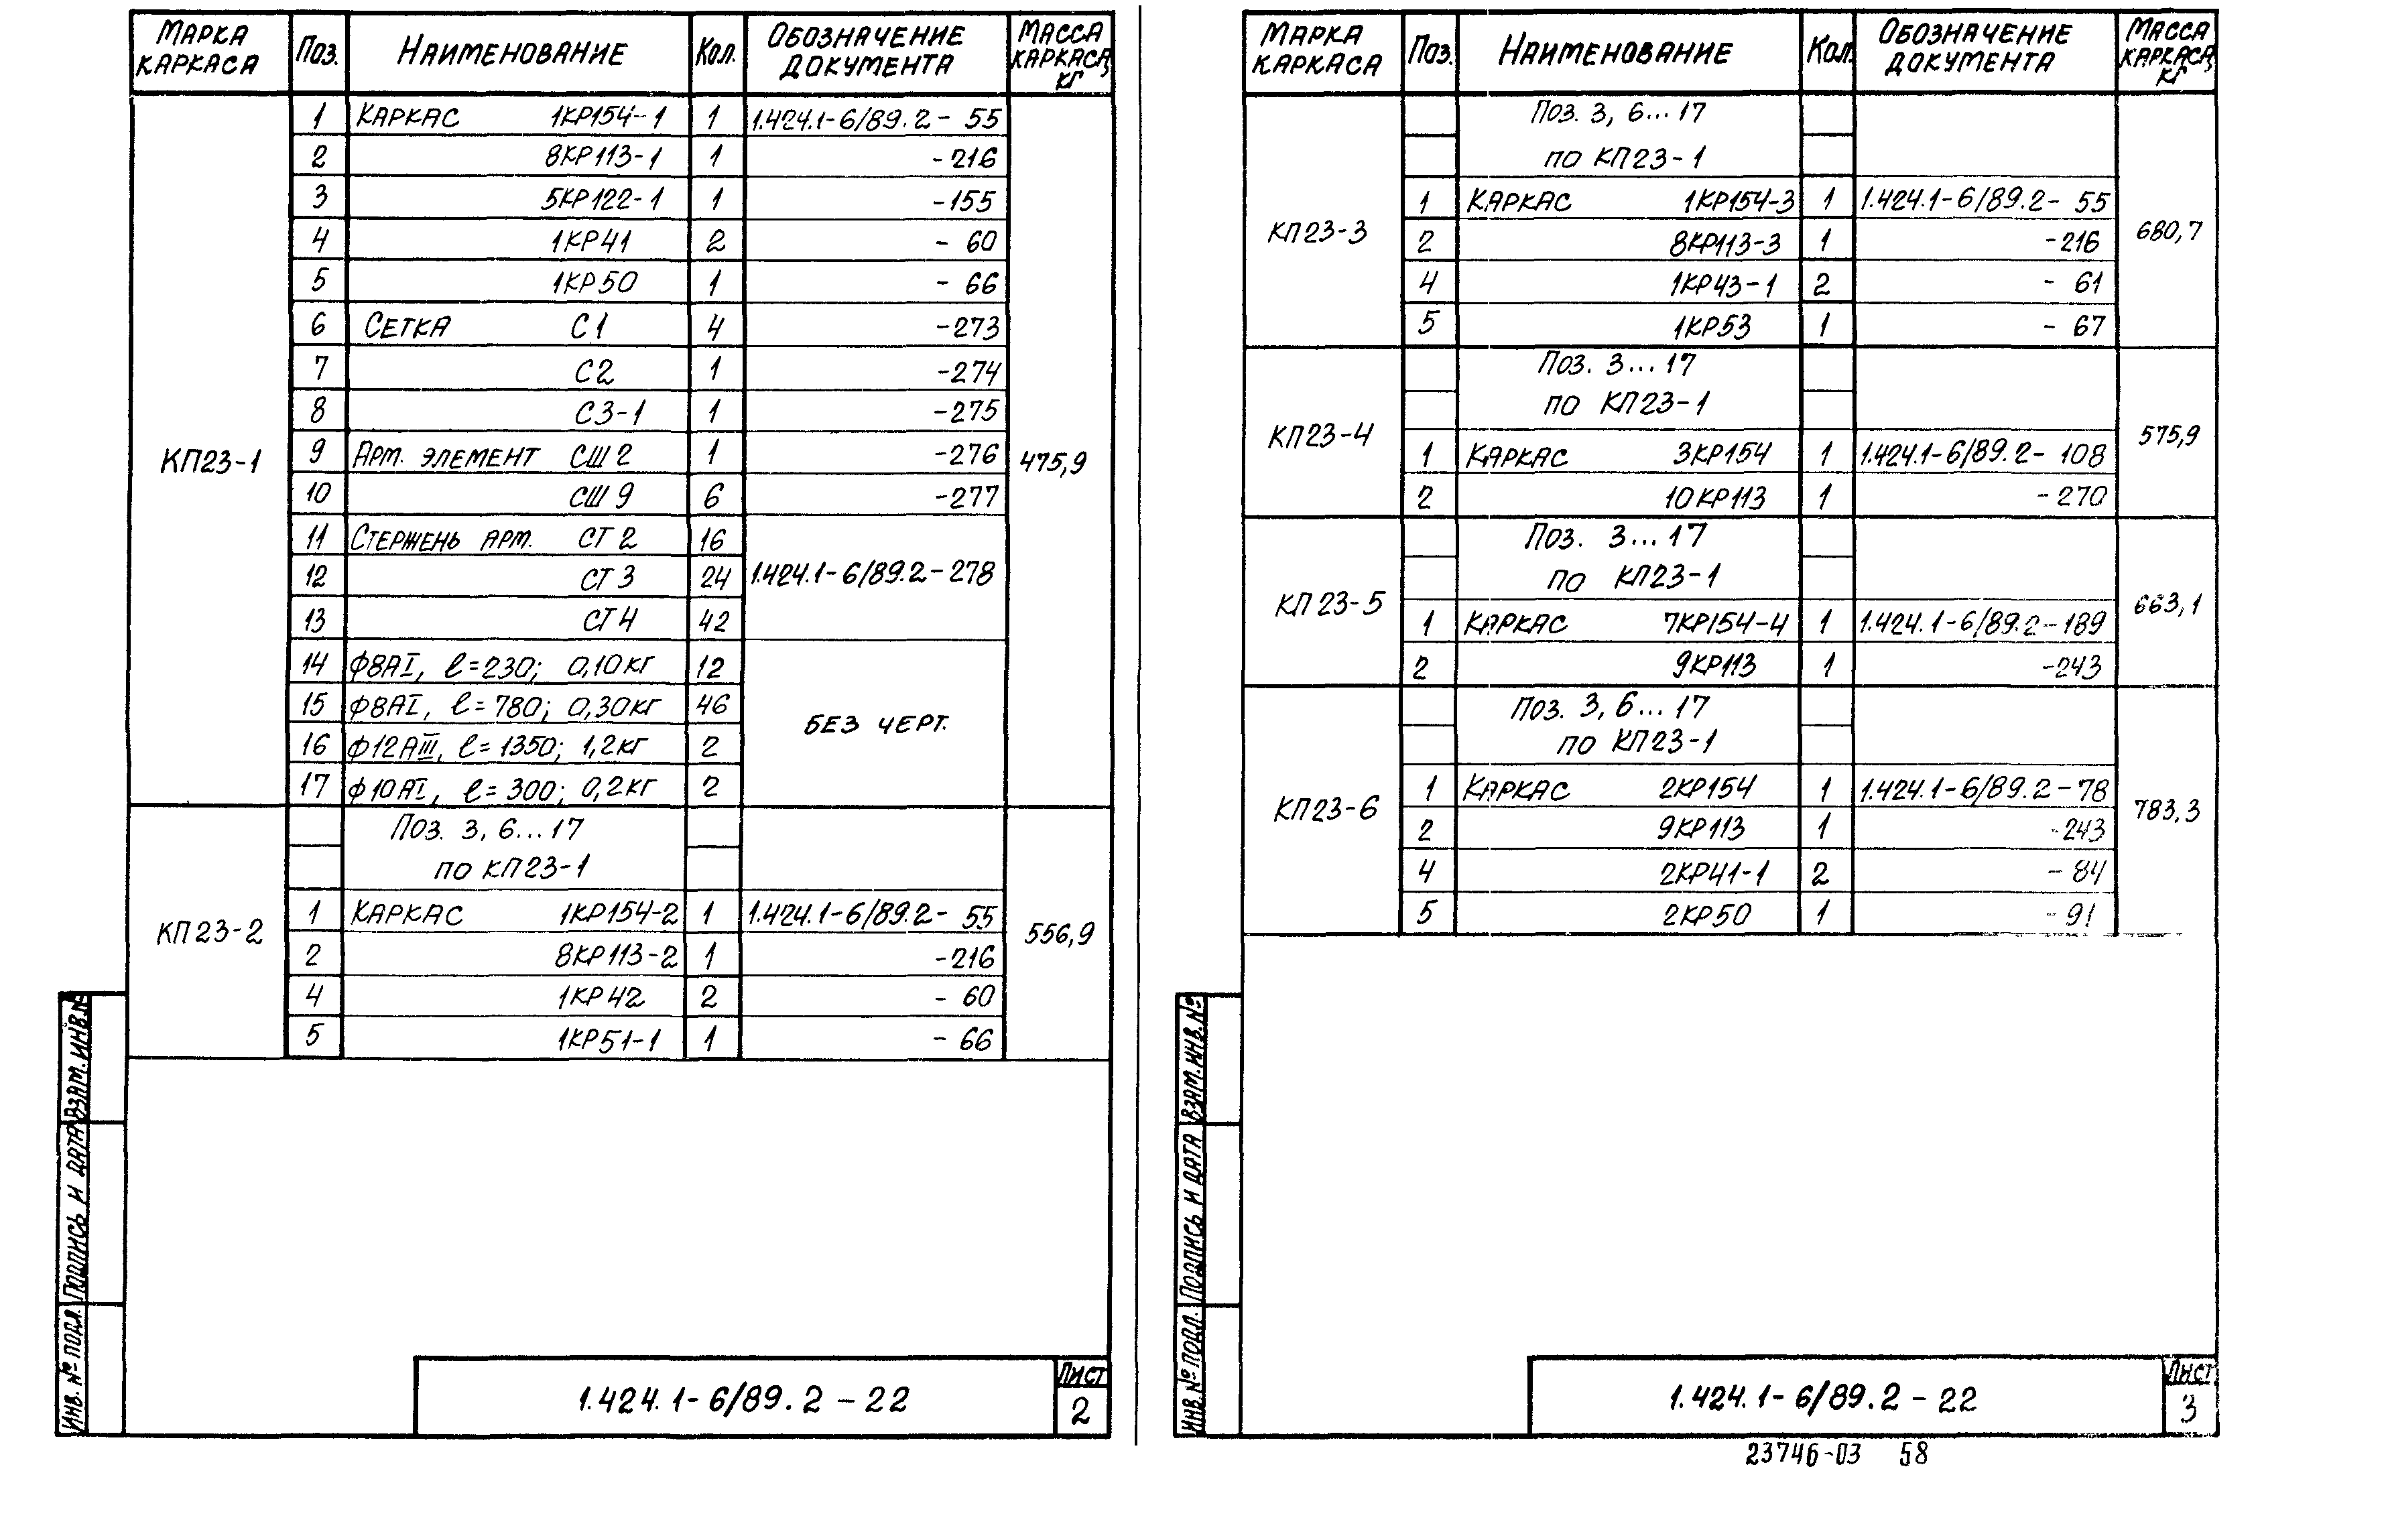 Марка каркаса | Поз. | Наименование | Кол. | Обозначение документа | Масса каркаса, кг
КП23-1 | 1 | Каркас 1КР154-1 | 1 | 1.424.1-6/89.2- 55 | 475,9
2 | 8КР113-1 | 1 | -216
3 | 5КР122-1 | 1 | -155
4 | 1КР41 | 2 | - 60
5 | 1КР50 | 1 | - 66
6 | Сетка С1 | 4 | -273
7 | С2 | 1 | -274
8 | С3-1 | 1 | -275
9 | Арм. элемент СШ2 | 1 | -276
10 | СШ9 | 6 | -277
11 | Стержень арм. СТ2 | 16 | 1.424.1-6/89.2-278
12 | СТ3 | 24
13 | СТ4 | 42
14 | ф8АI, ℓ=230; 0,10кг | 12 | без черт.
15 | ф8АI, ℓ=780; 0,30кг | 46
16 | ф12АIII, ℓ=1350; 1,2кг | 2
17 | ф10АI, ℓ=300; 0,2кг | 2
КП23-2 | Поз. 3, 6...17 | 556,9
по КП23-1
1 | Каркас 1КР154-2 | 1 | 1.424.1-6/89.2- 55
2 | 8КР113-2 | 1 | -216
4 | 1КР42 | 2 | - 60
5 | 1КР51-1 | 1 | - 66
Взам. инв. №
Подпись и дата
Инв. № подл.
1.424.1-6/89.2-22
Лист
2
Марка каркаса | Поз. | Наименование | Кол. | Обозначение документа | Масса каркаса, кг
КП23-3 | Поз. 3, 6...17 | 680,7
по КП23-1
1 | Каркас 1КР154-3 | 1 | 1.424.1-6/89.2- 55
2 | 8КР113-3 | 1 | -216
4 | 1КР43-1 | 2 | - 61
5 | 1КР53 | 1 | - 67
КП23-4 | Поз. 3...17 | 575,9
по КП23-1
1 | Каркас 3КР154 | 1 | 1.424.1-6/89.2- 108
2 | 10КР113 | 1 | -270
КП23-5 | Поз. 3...17 | 663,1
по КП23-1
1 | Каркас 7КР154-4 | 1 | 1.424.1-6/89.2-189
2 | 9КР113 | 1 | -243
КП23-6 | Поз. 3, 6...17 | 783,3
по КП23-1
1 | Каркас 2КР154 | 1 | 1.424.1-6/89.2-78
2 | 9КР113 | 1 | -243
4 | 2КР41-1 | 2 | - 84
5 | 2КР50 | 1 | - 91
Взам. инв. №
Подпись и дата
Инв. № подл.
1.424.1-6/89.2-22
Лист
3
23746-03 58